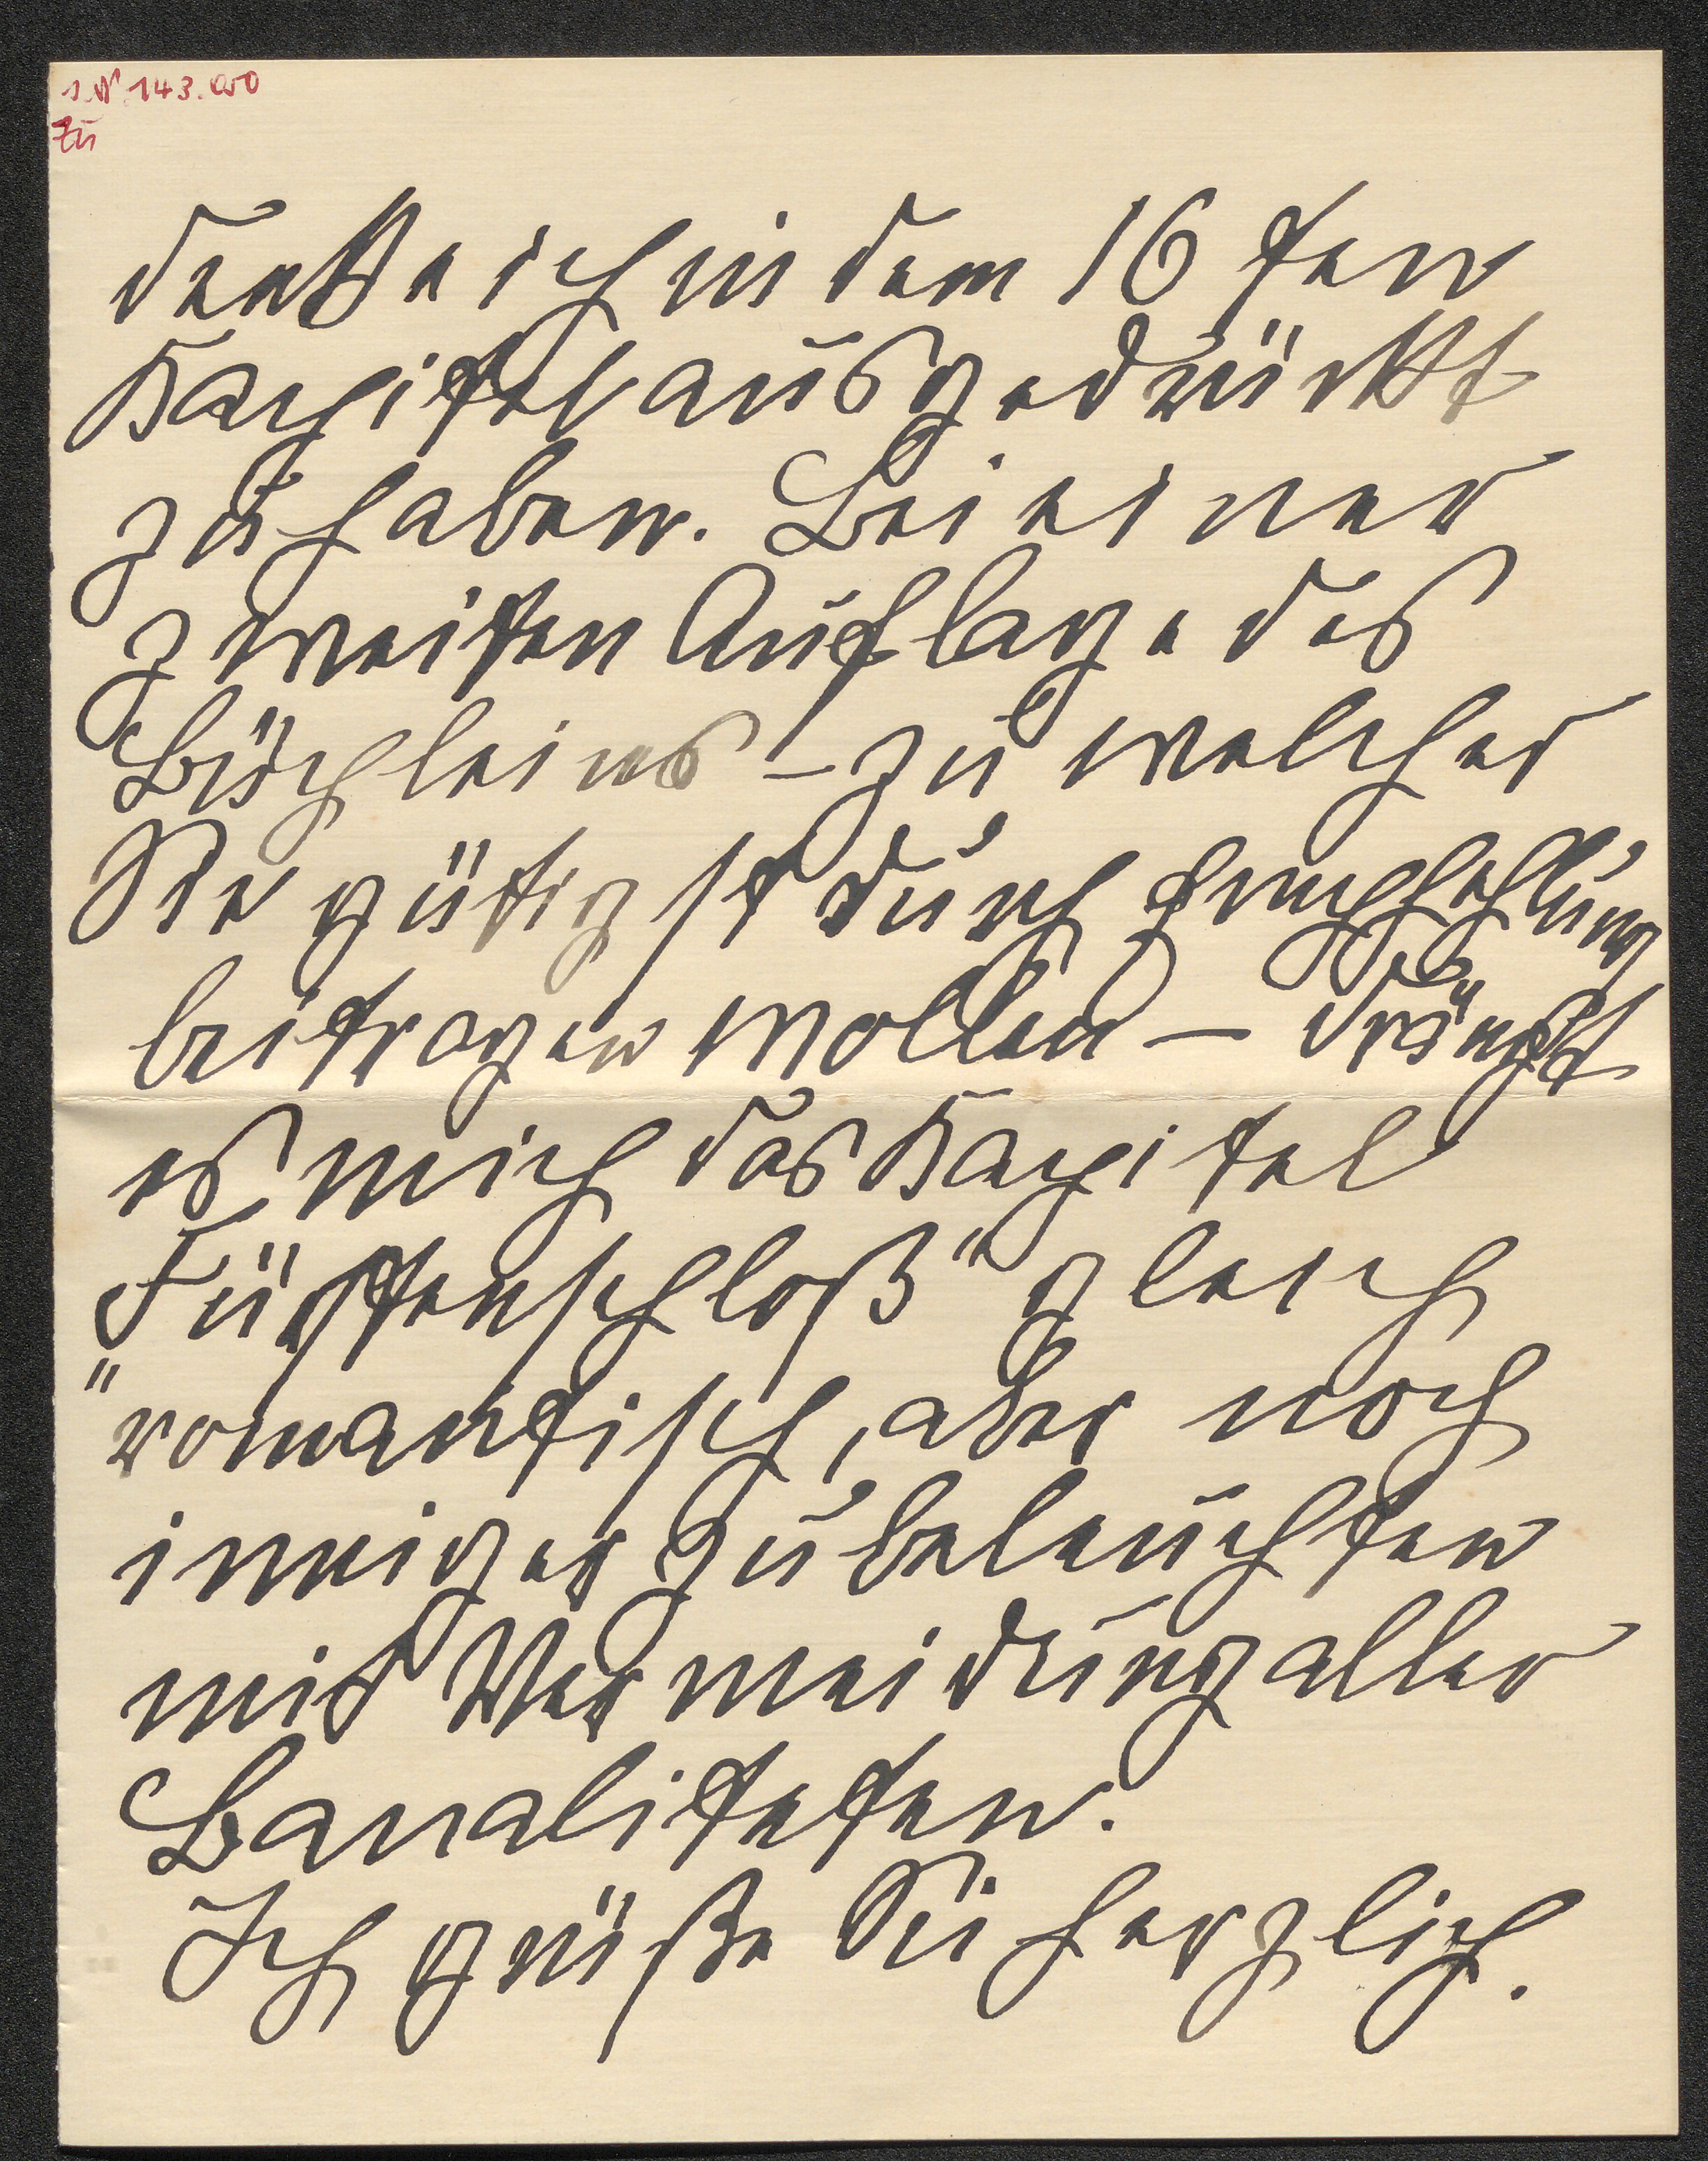 I.N. 143.050
Zu
denke ich in dem 16 ten
Kapitel ausgedrückt
zu haben. Bei einer
zweiten Auflage des
Büchleins – zu welcher
Sie gütigst durch Empfehlung
beitragen wollen – drängt
es mich das Kapitel
Fürstenschloß" gleich
"romantisch, aber noch
inniger zu beleuchten
mit Vermeidung aller
Banaliteten.
Ich grüße Sie herzlich.